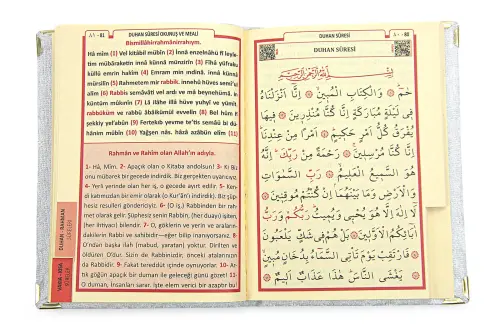 ٨١ - 81
DUHAN SÛRESİ OKUNUŞ VE MEALİ
Bismillâhirrahmânirrahıym.
Hâ mîm (1) Vel kitâbil mübîn (2) İnnâ enzelnâhü fî leyle-
tim mübâraketin innâ künnâ münzirîn (3) Fîhâ yüfraku
küllü emrin hakîm (4) Emram min ındinâ, innâ künnâ
mürsilîn (5) Rahmetem mir rabbik. innehû hüves semî'ul
alîm (6) Rabbis semâvâti vel ardı ve mâ beynehümâ, in
küntüm mûkınîn (7) Lâ ilâhe illâ hüve yuhyî ve yümît.
rabbüküm ve rabbü âbâikümül evvelîn (8) Bel hüm fî
şekkiy yel'abûn (9) Fertekıb yevme te'tis semâü bi dü-
hânim mübîn (10) Yağşen nâs. hâzâ azâbün elîm (11)
Rahmân ve Rahîm olan Allah'ın adıyla.
1- Hâ, Mîm. 2- Apaçık olan o Kitaba andolsun! 3- Ki Biz
onu mübarek bir gecede indirdik. Biz gerçekten uyarıcıyız.
4- Yerli yerinde olan her iş, o gecede ayırt edilir. 5- Ken-
di katımızdan bir emir olarak (o Kur'an'ı indirdik). Biz şüp-
hesiz resulleri göndericiyiz. 6- (O iş,) Rabbinden bir rah-
met olarak gelir. Şüphesiz senin Rabbin, (her duayı) işiten,
(her ihtiyacı) bilendir. 7- O, göklerin ve yerin ve arala-
dakilerin Rabbi ve sahibidir—eğer bilip inanıyorsanız. 8-
O'ndan başka ilah (mabud, yaratan) yoktur. Diriltен ve
öldüren O'dur. Sizin de Rabbinizdir, önceki atalarınızın
da Rabbidir. 9- Fakat tereddüt içinde oynuyorlar. 10- Ar-
tık göğün apaçık bir duman ile geleceği günü gözet! 11-
O duman, insanları sarar. İşte elem verici azap budur!
DUHAN - RAHMAN
SÛRELERİ
DUHAN SÛRESİ
٨٠ - 80
DUHAN SÛRESİ
بِسْمِ اللّٰهِ الرَّحْمٰنِ الرَّحِيمِ
حٰمٓ ۞ وَالْكِتَابِ الْمُبِينِ ۞ اِنَّٓا اَنْزَلْنَاهُ
فِى لَيْلَةٍ مُبَارَكَةٍ اِنَّا كُنَّا مُنْذِرِينَ ۞ فِيهَا
يُفْرَقُ كُلُّ اَمْرٍ حَكِيمٍ ۞ اَمْرًا مِنْ عِنْدِنَا
اِنَّا كُنَّا مُرْسِلِينَ ۞ رَحْمَةً مِنْ رَبِّكَ اِنَّهُ
هُوَ السَّمِيعُ الْعَلِيمُ ۞ رَبِّ السَّمٰوَاتِ
وَالْاَرْضِ وَمَا بَيْنَهُمَا اِنْ كُنْتُمْ مُوقِنِينَ ۞
لَٓا اِلٰهَ اِلَّا هُوَ يُحْيِى وَيُمِيتُ رَبُّكُمْ وَرَبُّ
اٰبَٓائِكُمُ الْاَوَّلِينَ ۞ بَلْ هُمْ فِى شَكٍّ يَلْعَبُونَ
فَارْتَقِبْ يَوْمَ تَأْتِى السَّمَٓاءُ بِدُخَانٍ مُبِينٍ
يَغْشَى النَّاسَ هٰذَا عَذَابٌ اَلِيمٌ ۞